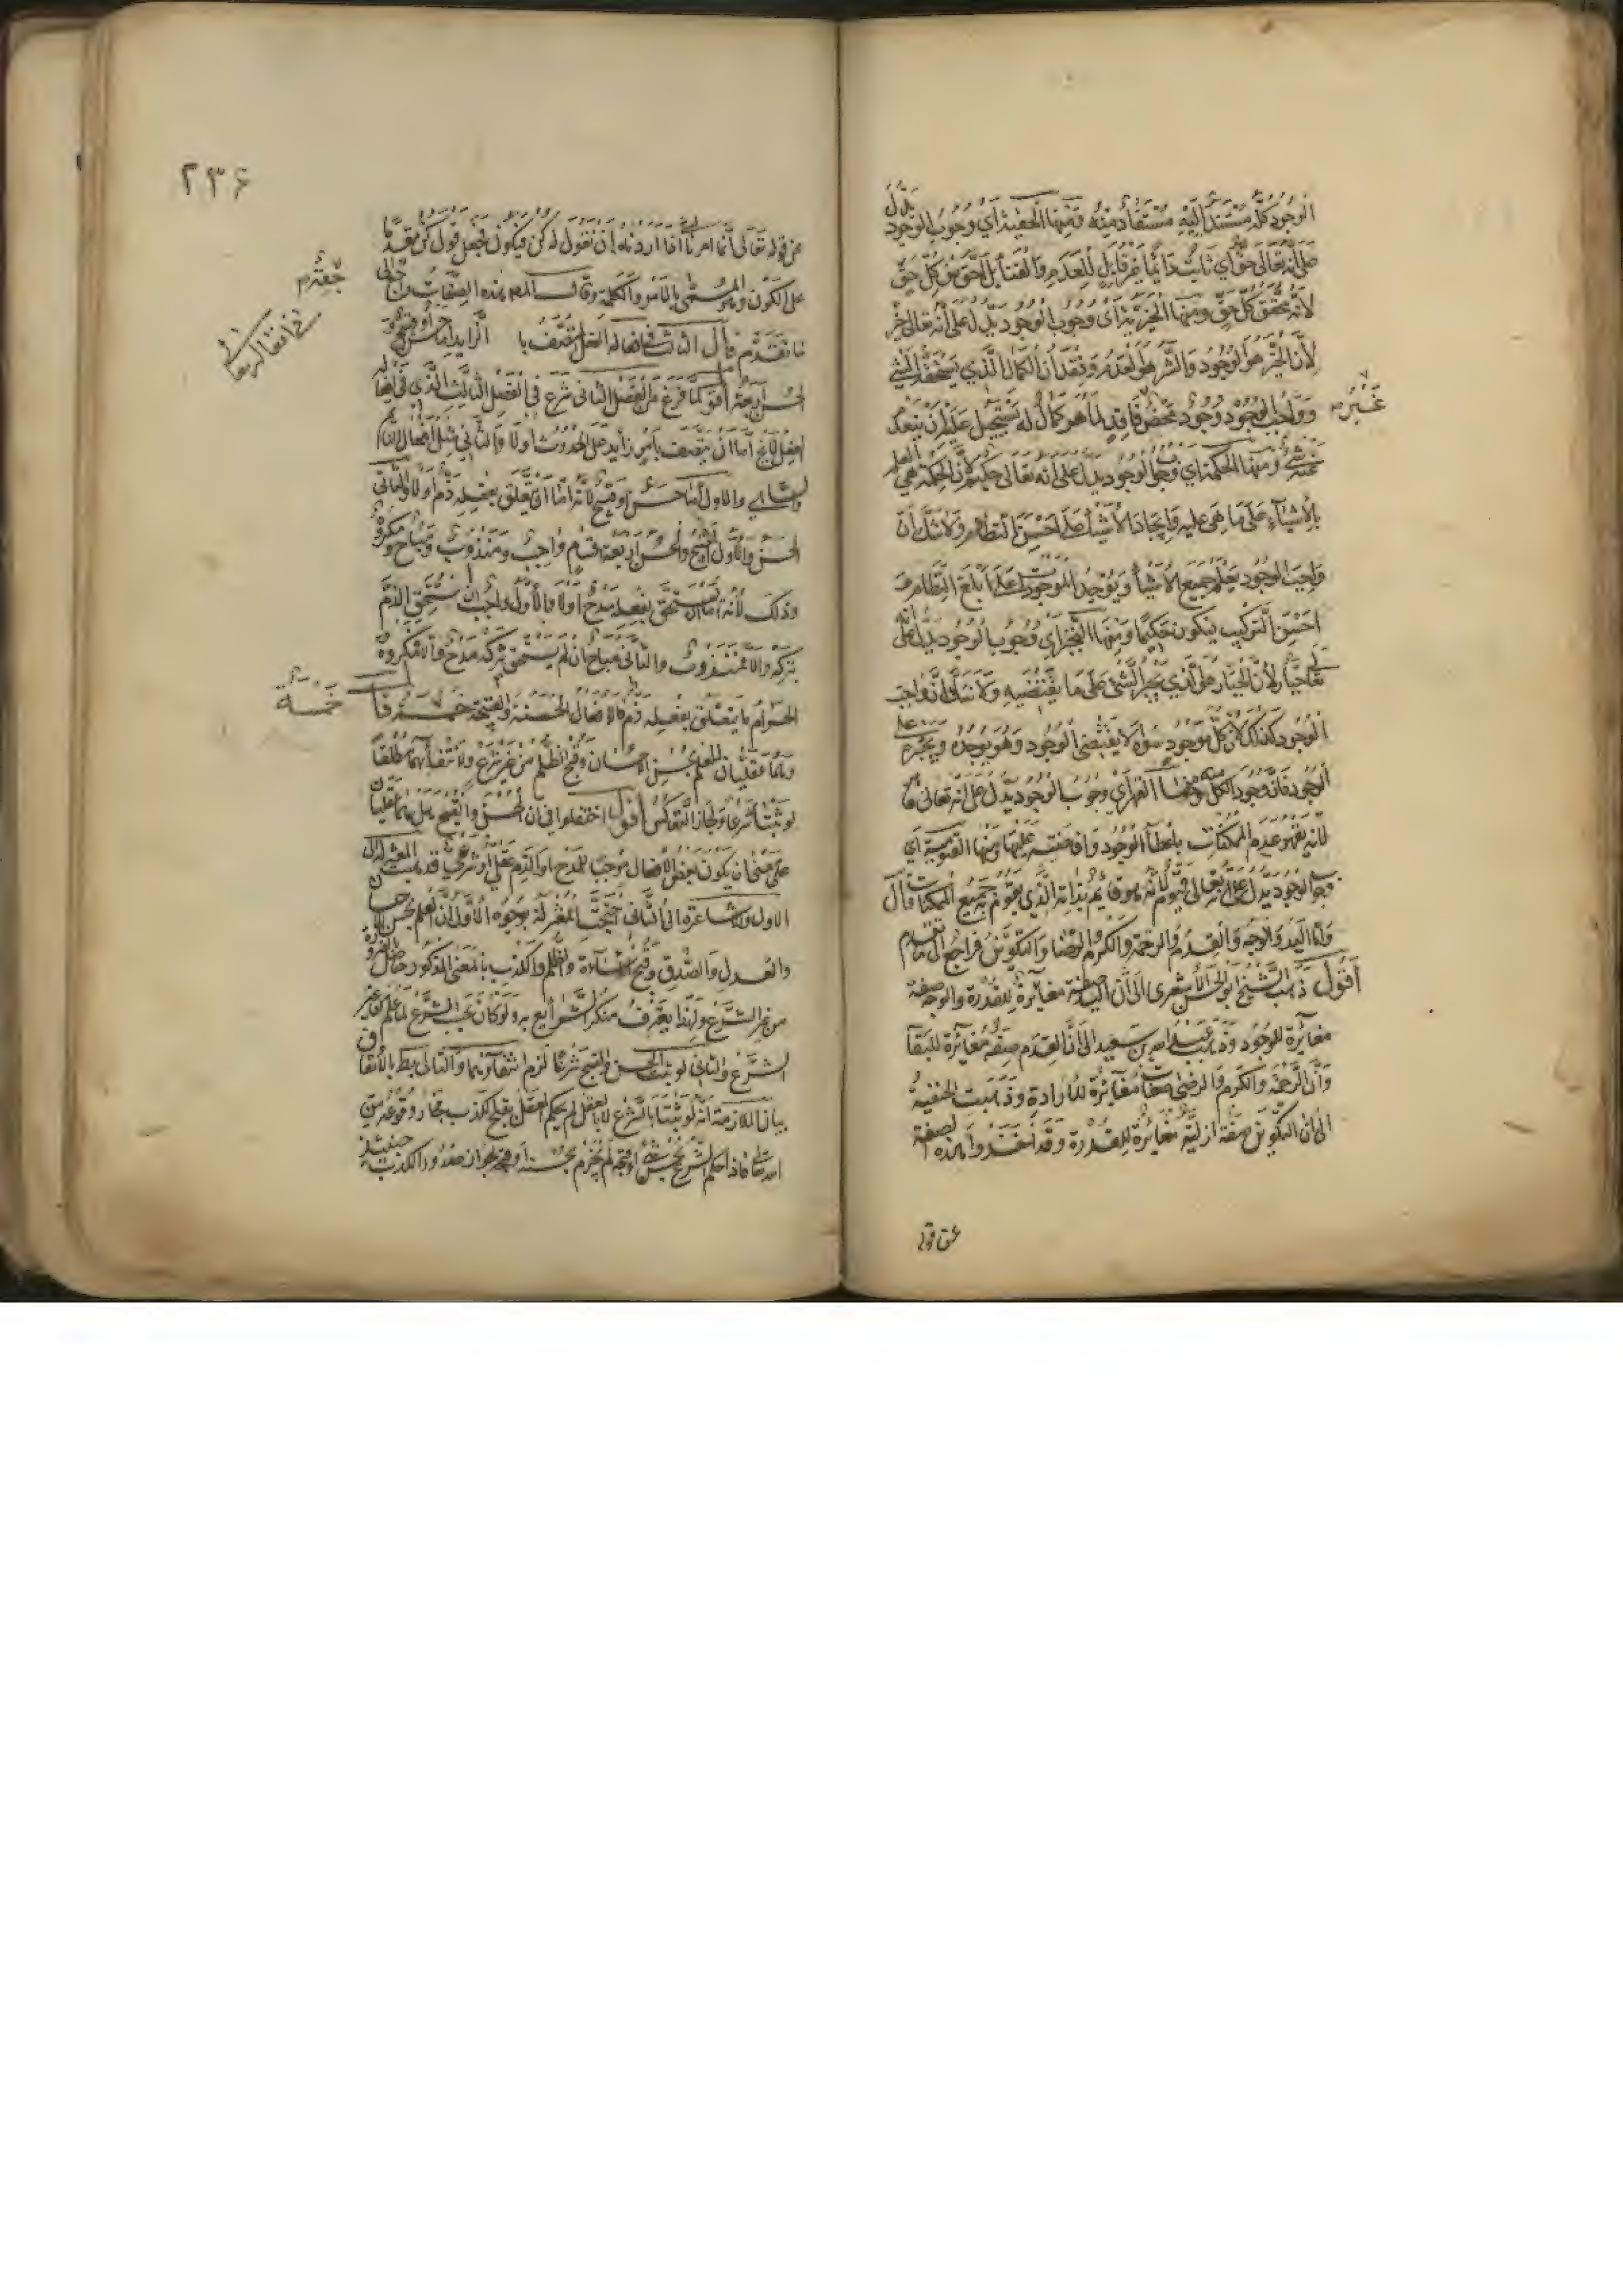 الوجود كله مستند اليه مستفاد منه ومنها الحقية اي وجوب الوجود يدل
على انه تعالى حق اي ثابت دائما غير قابل للعدم والفناء بل احق من كل حق
لانه محقق كل حق ومنها الخيرية اى وجوب الوجود يدل على انه تعالى خير
لان الخير هو الوجود والشر هو العدم وفقدان الكمال الذي يستحقه الشيء
وواجب الوجود وجود محض فاقد لما هو كمال له يستحيل عليه ان ينعدم
غير
عنه شئ ومنها الحكمة اي وجوب الوجود يدل على انه تعالى حكيم لان الحكمة هي العلم
بالأشياء على ما هي عليه وايجاد الأشياء على احسن النظام ولا شك ان
واجب الوجود يعلم جميع الأشياء ويوجد الموجودات على ابلغ النظام و
احسن التركيب فيكون حكيما ومنها التجبر اي وجوب الوجود يدل على انه
تعالى جبار لأن الجبار هو الذي يجبر الشئ على ما يقتضيه ولا شك ان واجب
الوجود كذلك لان كل موجود سواه لا يقتضى الوجود وهو يوجده ويجبره على
الوجود فان وجود الكل منه ومنها القهر اي وجوب الوجود يدل على انه تعالى قهار
لانه يقهر عدم الممكنات باعطاء الوجود وافاضته عليها ومنها القيومية اي
وجوب الوجود يدل على انه تعالى قيوم لانه هو قائم بذاته الذي يقوم به جميع الممكنات قال
واما اليد والوجه والقدم والرحمة والكرم والرضا والتكوين فراجع الى ما تقدم
اقول ذهب الشيخ ابو الحسن الأشعرى الى ان اليد صفة مغايرة للقدرة والوجه صفة
مغايرة للوجود وذهب عبد الله بن سعيد الى ان القدم صفة مغايرة للبقاء
وان الرحمة والكرم والرضى صفات مغايرة للارادة وذهبت الحنفية
الى ان التكوين صفة ازلية مغايرة للقدرة وقد اخذوا هذه الصفة
من قوله
٢٣٦
من قوله تعالى انما امرنا اذا اردناه ان نقول له كن فيكون فجعل قول كن مقدما
على الكون وهو المسمى بالامر والكلمة وقال المص هذه الصفات راجعة الى
جعة
ما تقدم قال الثالث في افعاله الفعل المتصف با الزايد اما حسن او قبيح و
في افعاله تعالى
الحسن اربعة اقول لما فرغ من الفصل الثانى شرع فى الفصل الثالث الذي في افعاله
الفعل اما ان يتصف بامر زايد على الحدوث اولا والثاني مثل افعال النائم
والساهي والاول اما حسن او قبيح لانه اما ان يتعلق بفعله ذم اولا والثانى
الحسن والاول القبيح والحسن اربعة اقسام واجب ومندوب ومباح ومكروه
وذلك لأنه اما ان يستحق بفعله مدح اولا والأول واجب ان استحق الذم
بتركه والا فمندوب والثانى مباح ان لم يستحق بتركه مدح والا مكروه
الحرام ما يتعلق بفعله ذم فالافعال الحسنة والقبيحة خمسة قال
خمسة
وهما عقليان للعلم بحسن الاحسان وقبح الظلم من غير شرع ولانتفائهما مطلقا
لو ثبتا شرعا ولجاز التعاكس اقول اختلفوا في ان الحسن والقبح هل هما عقليان
على معنى ان يكون بعض الافعال موجبا للمدح او الذم عقلي او شرعي فذهبت المعتزلة الى
الاول والاشاعرة الى الثانى احتجت المعتزلة بوجوه الاول ان العلم بحسن الاحسان
والعدل والصدق وقبح الاساءة والظلم والكذب بالمعنى المذكور حاصل بالضرورة
من غير الشرع ولهذا يعترف منكر الشرايع به ولو كان بحسب الشرع لما علم من غير
الشرع والثانى لو ثبت الحسن والقبح شرعا لزم انتفاؤهما والتالى بط بالاتفاق
بيان الملازمة انه لو ثبتا بالشرع لا بالعقل لم يحكم العقل بقبح الكذب فجاز وقوعه من
الله تعالى فاذا حكم الشرع بحسن شئ او قبحه لم نجزم بحسنه او قبحه لجواز صدور الكذب حينئذ